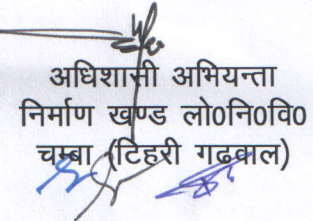 अधिशासी अभियन्ता
निर्माण खण्ड लो0नि0वि0
चम्बा (टिहरी गढवाल)